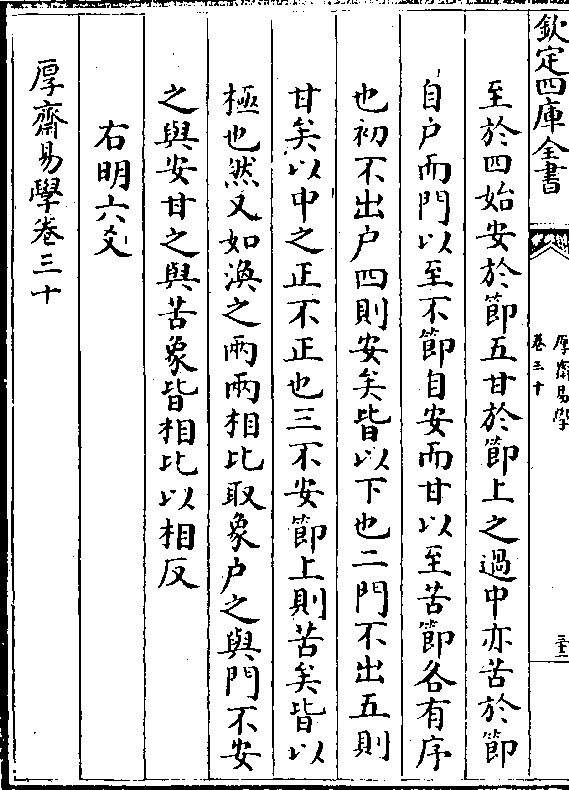 欽定四庫全書
厚齋易學
卷三十
至於四始安於節五甘於節上之過中亦苦於節
自户而門以至不節自安而甘以至苦節各有序
也初不出户四則安矣皆以下也二門不出五則
甘矣以中之正不正也三不安節上則苦矣皆以
極也然又如渙之兩兩相比取象户之與門不安
之與安甘之與苦象皆相比以相反
右明六爻
厚齋易學卷三十